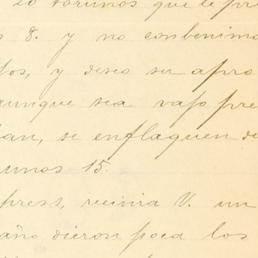 lo torunos que le pre
s 8. y no conbenimo
tos, y deseo su apro
aunque sea vajo pre
an, se enflaquen de
runos 15.
prest, reunia V. un
año dieron poca los